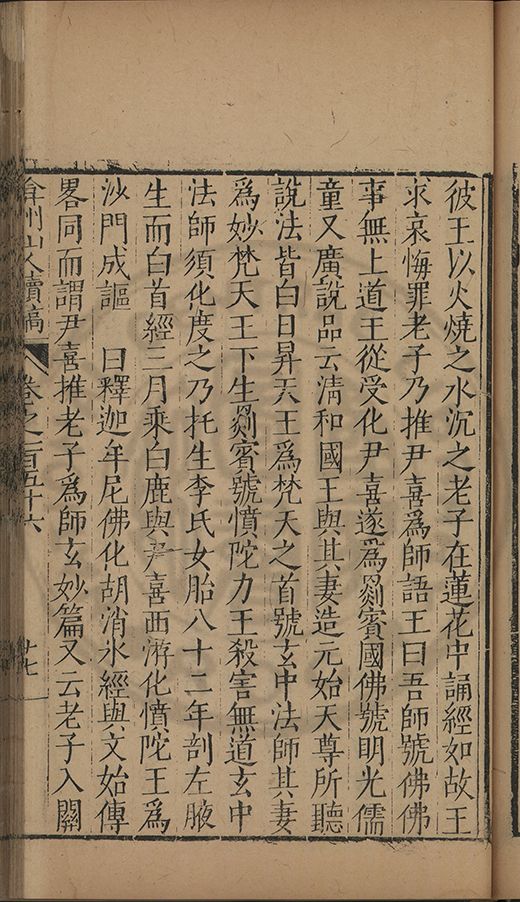 彼王以火燒之水沉之老子在蓮花中誦經如故王
求哀悔罪老子乃推尹喜爲師語王曰吾師號佛佛
事無上道王從受化尹喜遂爲罽賓國佛號明光儒
童又廣說品云清和國王與其妻造元始天尊所聽
說法皆白日昇天王爲梵天之首號玄中法師其妻
爲妙梵天王下生罽賓號憤陀力王殺害無道玄中
法師須化度之乃托生李氏女胎八十二年剖左腋
生而白首經三月乘白鹿與尹喜西游化憤陀王爲
沙門成謳 曰釋迦牟尼佛化胡消氷經與文始傳
畧同而謂尹喜推老子爲師玄妙篇又云老子入關
弇州山人續稿 卷之一百五十六 廿七